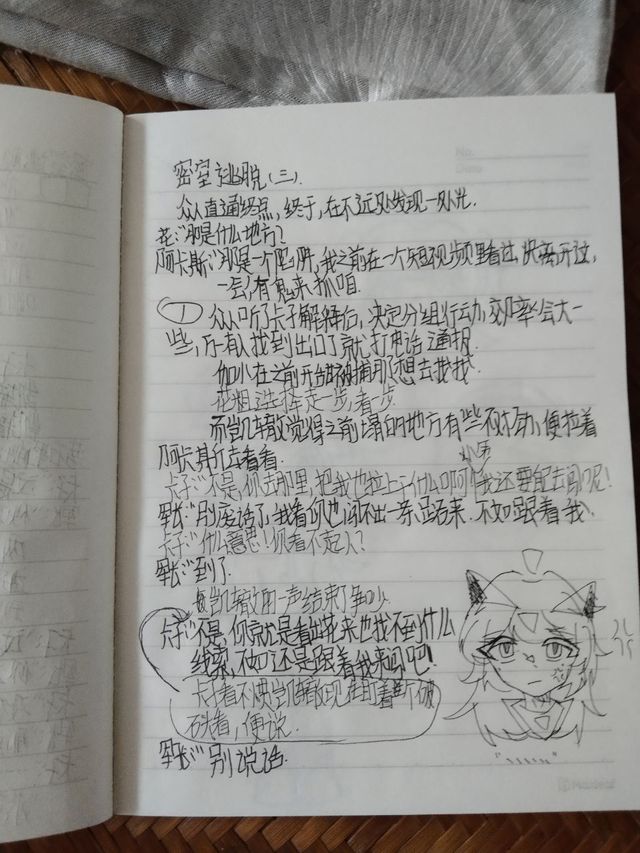 No.
Date
密室逃脱(三).
众人直通终点,终于,在不远处发现一处光.
花:"那是什么地方?
阿卡斯:"那是一个陷阱,我之前在一个短视频里看过,快离开这,
一会,有鬼来抓咱.
① 众人听了卡子解释后,决定分组行动,效率会大一
些,有人找到出口了就打电话通报.
伽小在之前开始被捕那想去找找.
花组选择走一步,看一步.
而凯撒觉得之前塌的地方有些不对劲,便拉着
阿卡斯去看看.
卡子:"不是,你去那里,把我也拉上干什么啊啊!我还要去闯呢!
军长:"别废话了,我看你也闯不出一条路来.不如跟着我.
卡子:"什么意思!你看不起人?
军长:"到了.
凯撒的一声结束了争吵.
卡子:"不是,你就是看出花来也找不到什么
线索,不如还是跟着我来闯吧!
卡子看不惯凯撒现在盯着断破
石看,便说.
军长:"别说话.
"、、、、、"